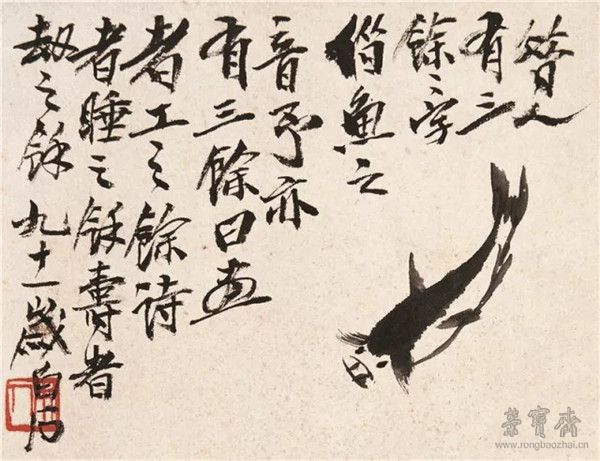 昔人
有三
餘〻字
借魚之
音予亦
有三餘曰画
者工之餘詩
者睡之餘壽者
劫之餘 九十一歲白石
榮寶齋
www.rongbaozhai.cn